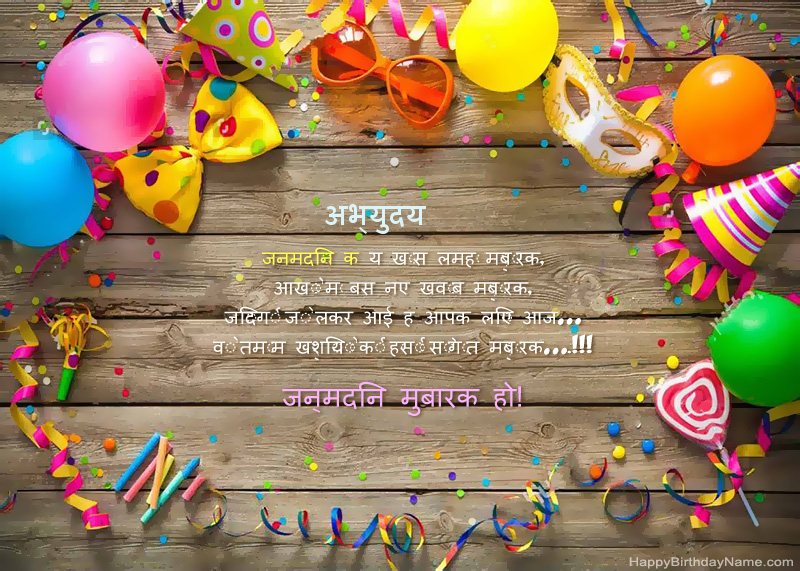 अभ्युदय
जनमदिन क य ख़ास लमहा मबुारक,
आखोंमे बसे नए ख्वाब मबुारक,
जिंदगी जो लेकर आई है आपके लिए आज...
वो तमाम खुशियों की हंसी सौगात मबुारक...!!!
जन्मदिन मुबारक हो!
HappyBirthdayName.com